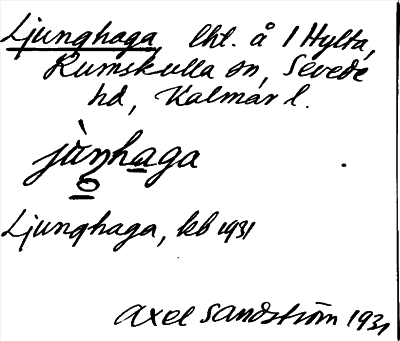 Ljunghaga, lht. å 1 Hylta,
Rumskulla sn, Sevede
hd, Kalmar l.
jùŋhaga
o
Ljunghaga, kb 1931
Axel Sandström 1931